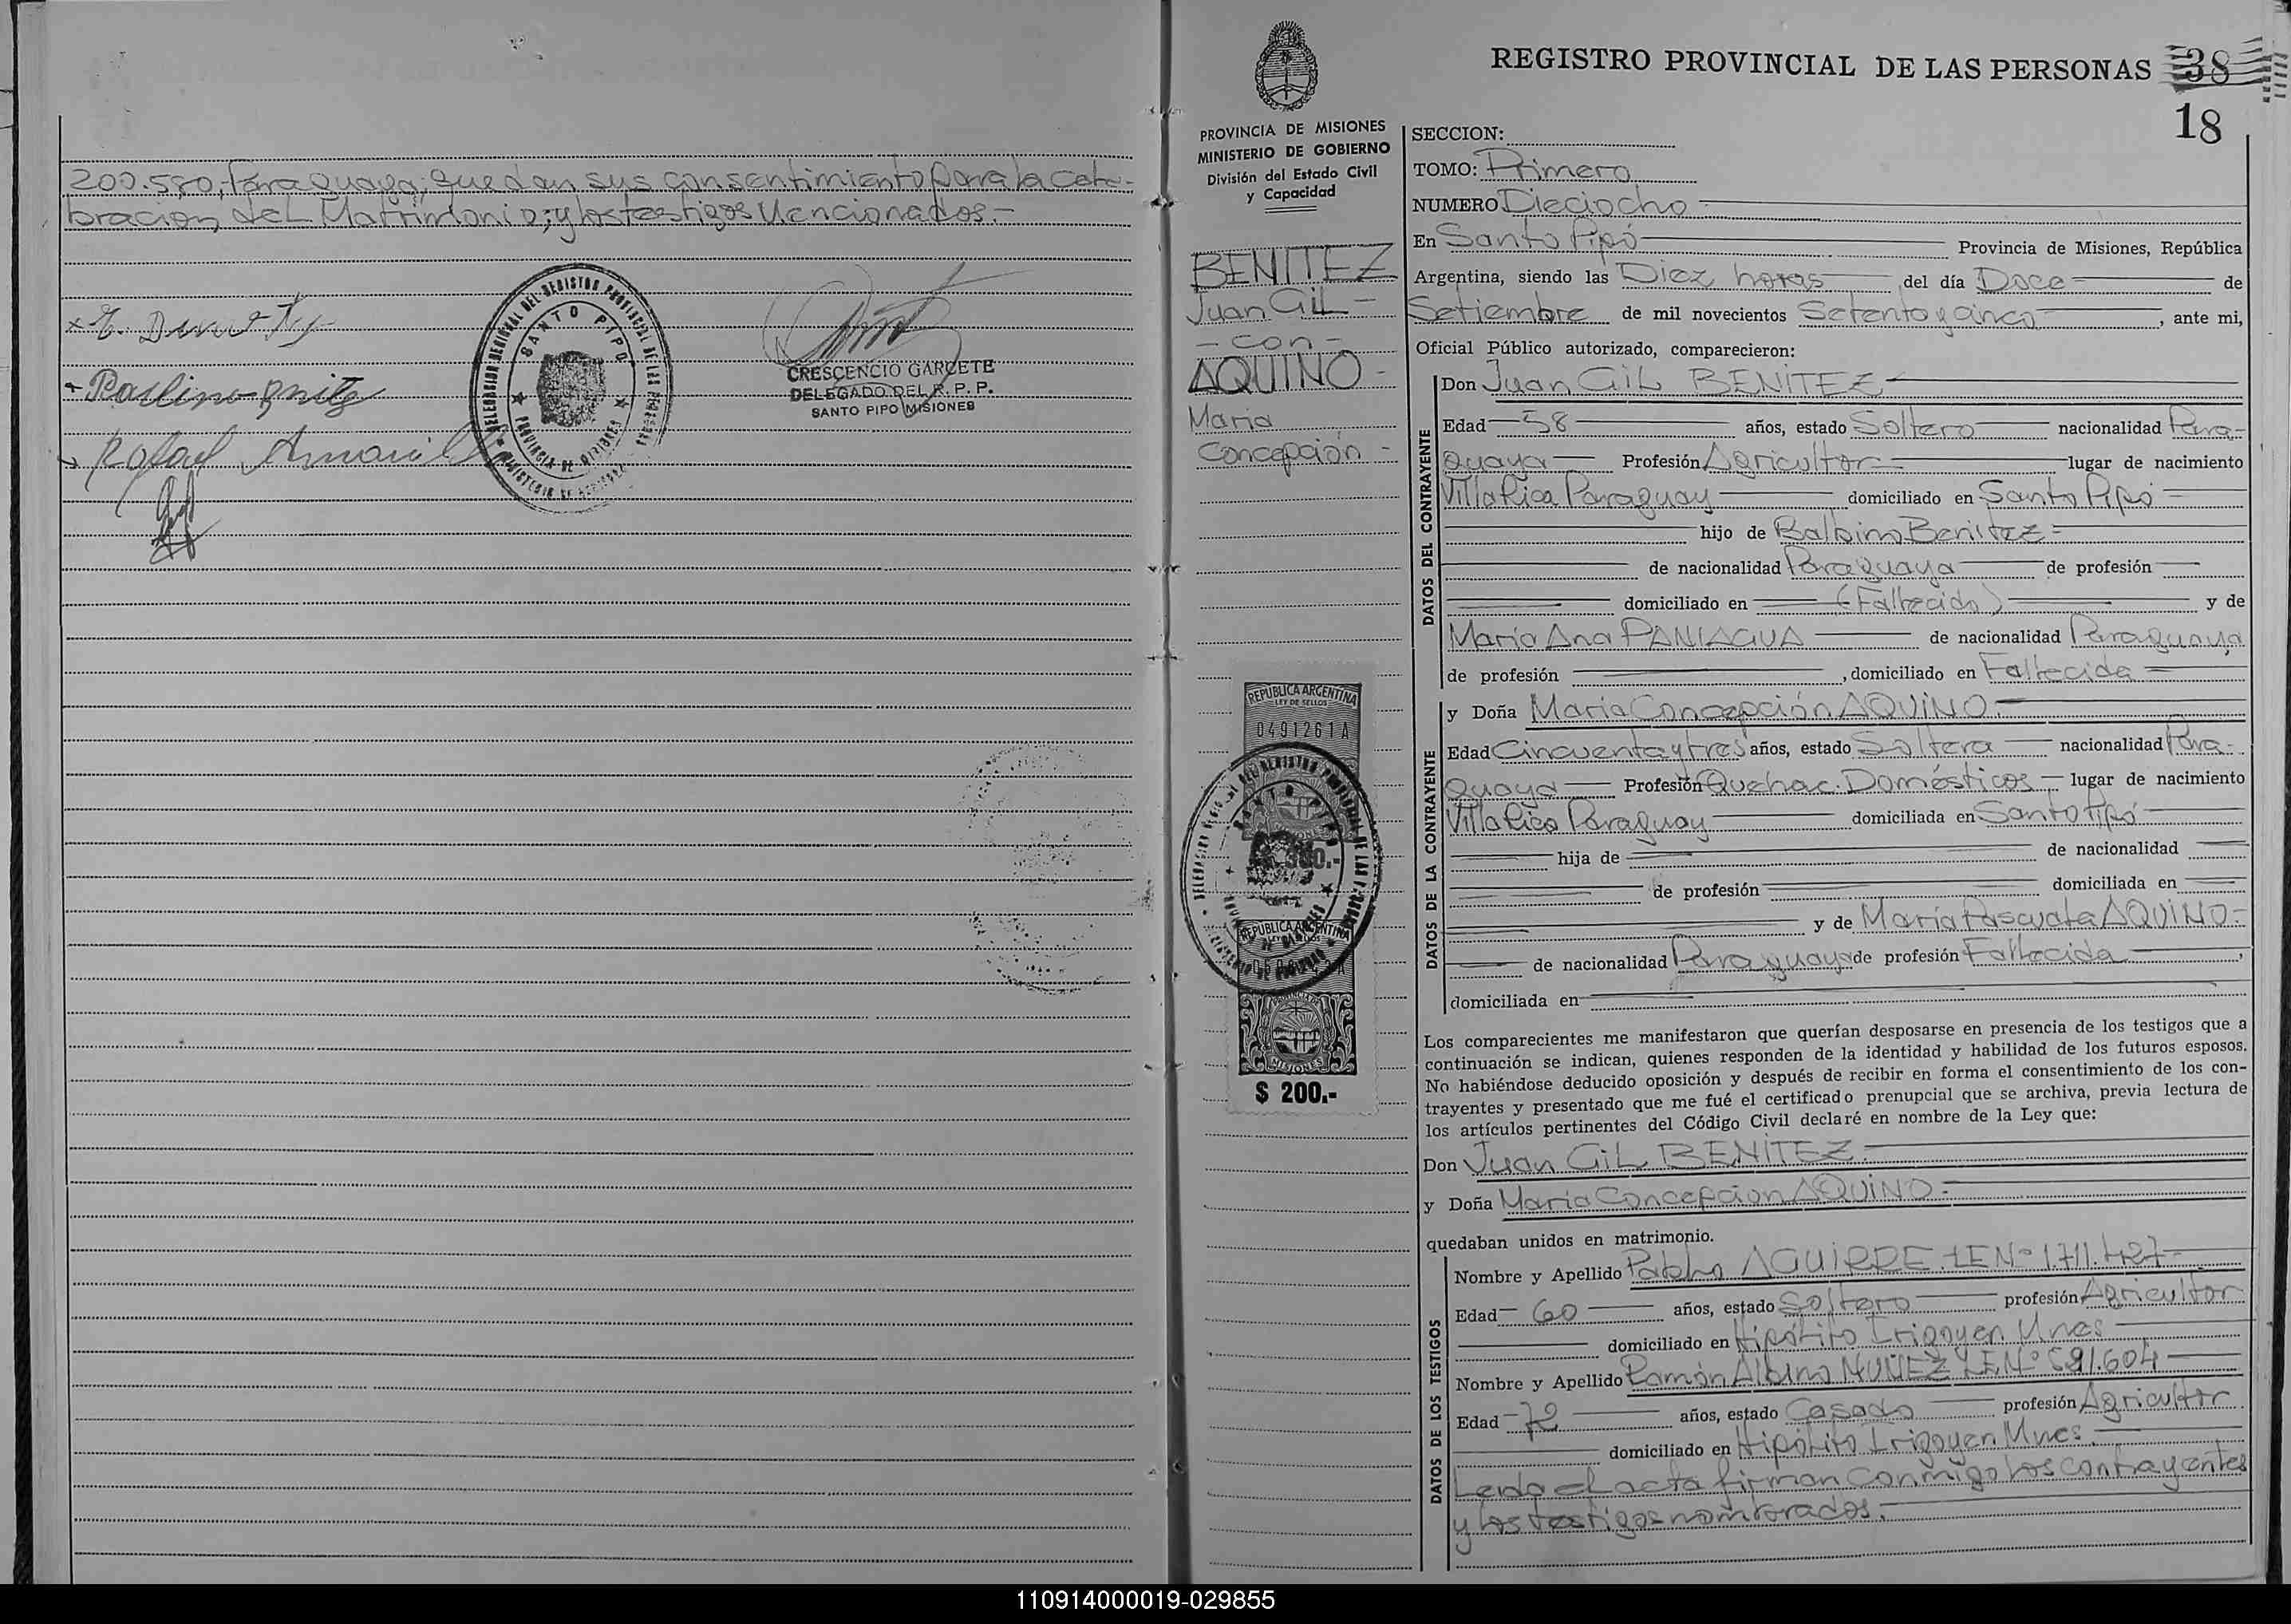 200.580, Paraguaya, que dan sus consentimiento para la cele-
bracion, del Matrimonio; y los testigos Mencionados.-
CRESCENCIO GARCETE
DELEGADO DEL R. P. P.
SANTO PIPO MISIONES
Rafael
SANTO PIPO
PROVINCIA DE MISIONES
REGISTRO PROVINCIAL DE LAS PERSONAS 38
18
PROVINCIA DE MISIONES
MINISTERIO DE GOBIERNO
División del Estado Civil
y Capacidad
BENITEZ
Juan Gil -
- con -
AQUINO -
Maria
Concepción -
REPUBLICA ARGENTINA
LEY DE SELLOS
0491261A
300.-
REPUBLICA ARGENTINA
MISIONES
$ 200.-
SECCION:
TOMO: Primero
NUMERO Dieciocho
En Santo Pipó Provincia de Misiones, República
Argentina, siendo las Diez horas del día Doce de
Setiembre de mil novecientos Setenta y cinco, ante mi,
Oficial Público autorizado, comparecieron:
DATOS DEL CONTRAYENTE
Don Juan GiL BENITEZ
Edad 58 años, estado Soltero nacionalidad Para-
guaya Profesión Agricultor lugar de nacimiento
Villa Rica Paraguay domiciliado en Santo Pipó
hijo de Balbino Benitez
de nacionalidad Paraguaya de profesión
domiciliado en (Fallecido) y de
Maria Ana PANIAGUA de nacionalidad Paraguaya
de profesión , domiciliado en Fallecida
DATOS DE LA CONTRAYENTE
y Doña Maria Concepción AQUINO.
Edad Cincuenta y tres años, estado Soltera nacionalidad Para-
guaya Profesión Quehac. Domésticos lugar de nacimiento
Villa Rica Paraguay domiciliada en Santo Pipó
hija de de nacionalidad
de profesión domiciliada en
y de María Pascuala AQUINO-
de nacionalidad Paraguaya de profesión Fallecida ,
domiciliada en
Los comparecientes me manifestaron que querían desposarse en presencia de los testigos que a
continuación se indican, quienes responden de la identidad y habilidad de los futuros esposos.
No habiéndose deducido oposición y después de recibir en forma el consentimiento de los con-
trayentes y presentado que me fué el certificado prenupcial que se archiva, previa lectura de
los artículos pertinentes del Código Civil declaré en nombre de la Ley que:
Don Juan GiL BENITEZ.
y Doña Maria Concepcion AQUINO.
quedaban unidos en matrimonio.
DATOS DE LOS TESTIGOS
Nombre y Apellido Pablo AGUIRRE. LE Nº 1.711.427
Edad 60 años, estado Soltero profesión Agricultor
domiciliado en Hipólito Irigoyen Mnes
Nombre y Apellido Ramón Albino NUÑEZ LE. Nº 591.604
Edad 72 años, estado Casado profesión Agricultor
domiciliado en Hipólito Irigoyen Mnes.
Leida el acta firman conmigo los contrayentes
y los testigos nombrados.
110914000019-029855